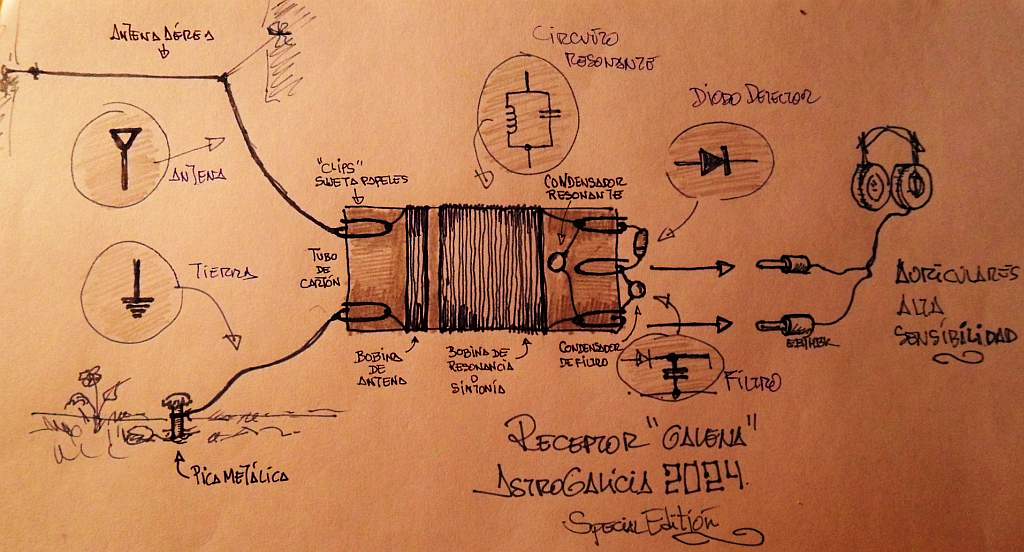 ANTENA AÉREA
CIRCUITO
RESONANTE
DIODO DETECTOR
ANTENA
"CLIPS"
SUJETA PAPELES
CONDENSADOR
RESONANTE
TIERRA
TUBO
DE
CARTÓN
AURICULARES
ALTA
SENSIBILIDAD
BOBINA
DE
ANTENA
BOBINA DE
RESONANCIA
O
SINTONÍA
CONDENSADOR
DE FILTRO
FILTRO
PICA METÁLICA
RECEPTOR "GALENA"
ASTROGALICIA 2024.
SPECIAL EDITIÓN